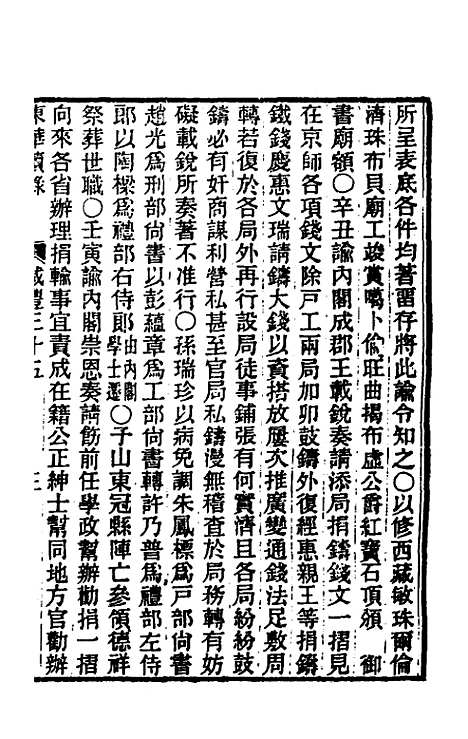 所呈表底各件均著留存將此諭令知之〇以修西藏敏珠爾倫
濟珠布貝廟工竣賞噶卜倫旺曲揚布虛公爵紅寶石頂頒　御
書廟額〇辛丑諭內閣成郡王載銳奏請添局捐鑄錢文一摺見
在京師各項錢文除戶工兩局加卯鼓鑄外復經惠親王等捐鑄
鐵錢慶惠文瑞請鑄大錢以資搭放屢次推廣變通錢法足敷周
轉若復於各局外再行設局徒事鋪張有何實濟且各局紛紛鼓
鑄必有奸商謀利營私甚至官局私鑄漫無稽查於局務轉有妨
礙載銳所奏著不准行〇孫瑞珍以病免調朱鳳標為戶部尚書
趙光為刑部尚書以彭蘊章為工部尚書轉許乃普為禮部左侍
郎以陶樑為禮部右侍郎由內閣學士遷〇予山東冠縣陣亡參領德祥
祭葬世職〇壬寅諭內閣崇恩奏請飭前任學政幫辦勸捐一摺
向來各省辦理捐輸事宜責成在籍公正紳士幫同地方官勸辦
東華續錄　咸豐三十五　三